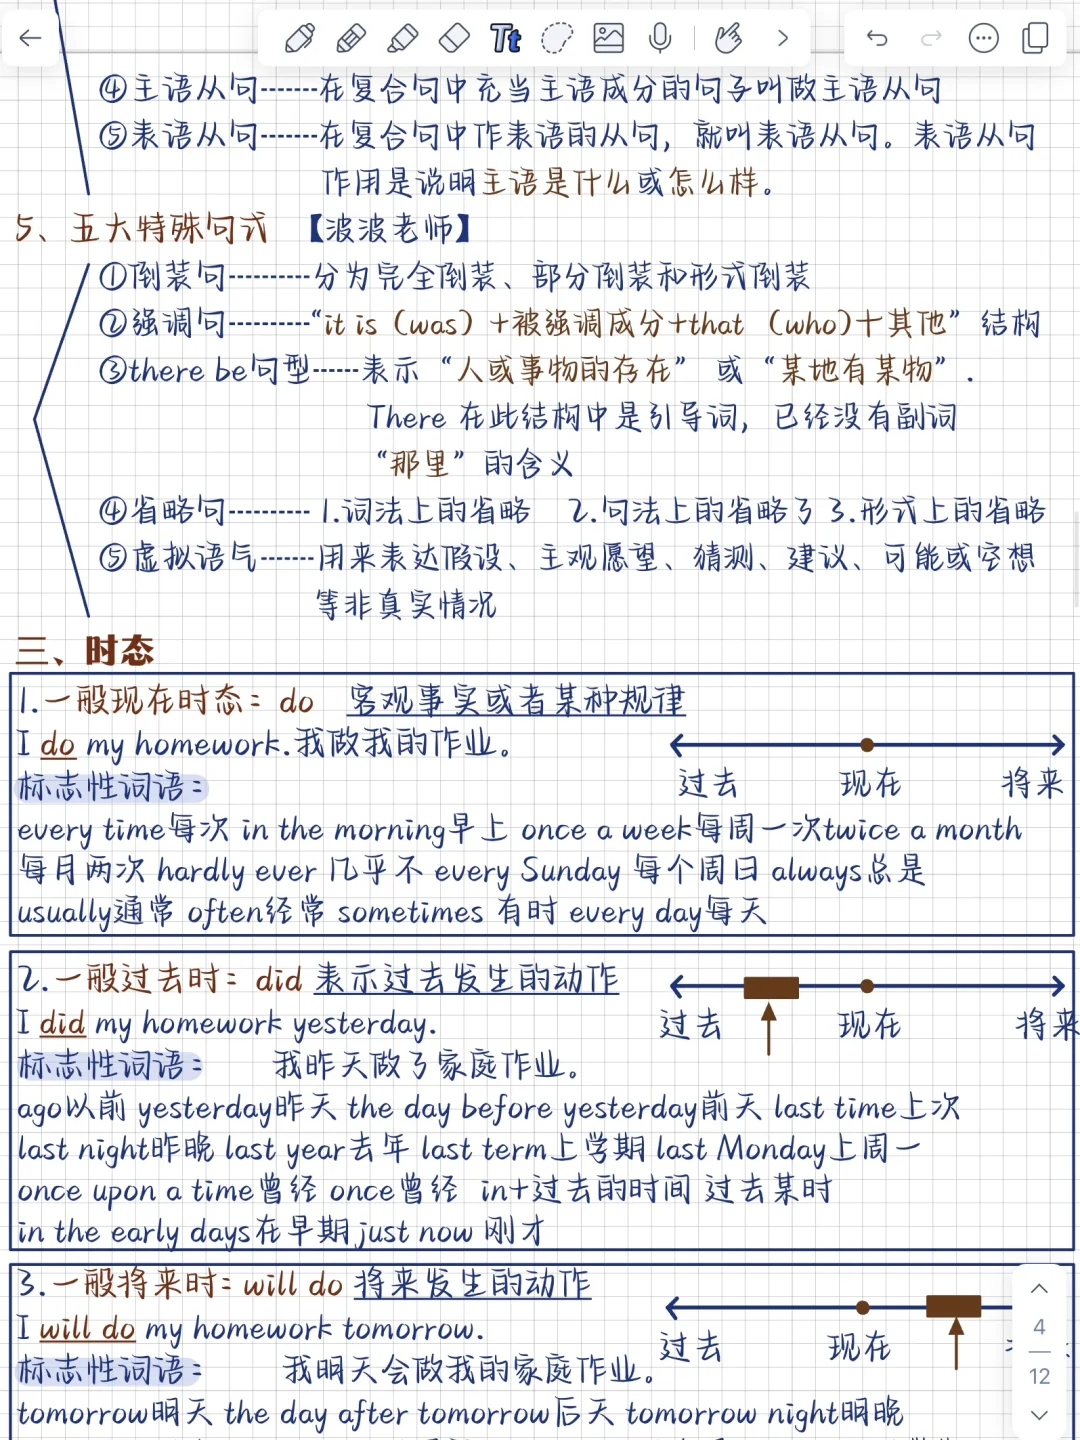 Tt
④主语从句-------在复合句中充当主语成分的句子叫做主语从句
⑤表语从句-------在复合句中作表语的从句，就叫表语从句。表语从句
作用是说明主语是什么或怎么样。
5、五大特殊句式 【波波老师】
①倒装句----------分为完全倒装、部分倒装和形式倒装
②强调句----------“it is（was）+被强调成分+that （who)十其他”结构
③there be句型------表示“人或事物的存在” 或“某地有某物”.
There 在此结构中是引导词，已经没有副词
“那里”的含义
④省略句---------- 1.词法上的省略 2.句法上的省略了 3.形式上的省略
⑤虚拟语气-------用来表达假设、主观愿望、猜测、建议、可能或空想
等非真实情况
三、时态
1.一般现在时态：do 客观事实或者某种规律
I do my homework.我做我的作业。
过去 现在 将来
标志性词语：
every time每次 in the morning早上 once a week每周一次twice a month
每月两次 hardly ever 几乎不 every Sunday 每个周日 always总是
usually通常 often经常 sometimes 有时 every day每天
2.一般过去时：did 表示过去发生的动作
I did my homework yesterday.
过去 现在 将来
标志性词语： 我昨天做了家庭作业。
ago以前 yesterday昨天 the day before yesterday前天 last time上次
last night昨晚 last year去年 last term上学期 last Monday上周一
once upon a time曾经 once曾经 in+过去的时间 过去某时
in the early days在早期just now 刚才
3.一般将来时：will do 将来发生的动作
I will do my homework tomorrow.
过去 现在
标志性词语： 我明天会做我的家庭作业。
tomorrow明天 the day after tomorrow后天 tomorrow night明晚
4
12